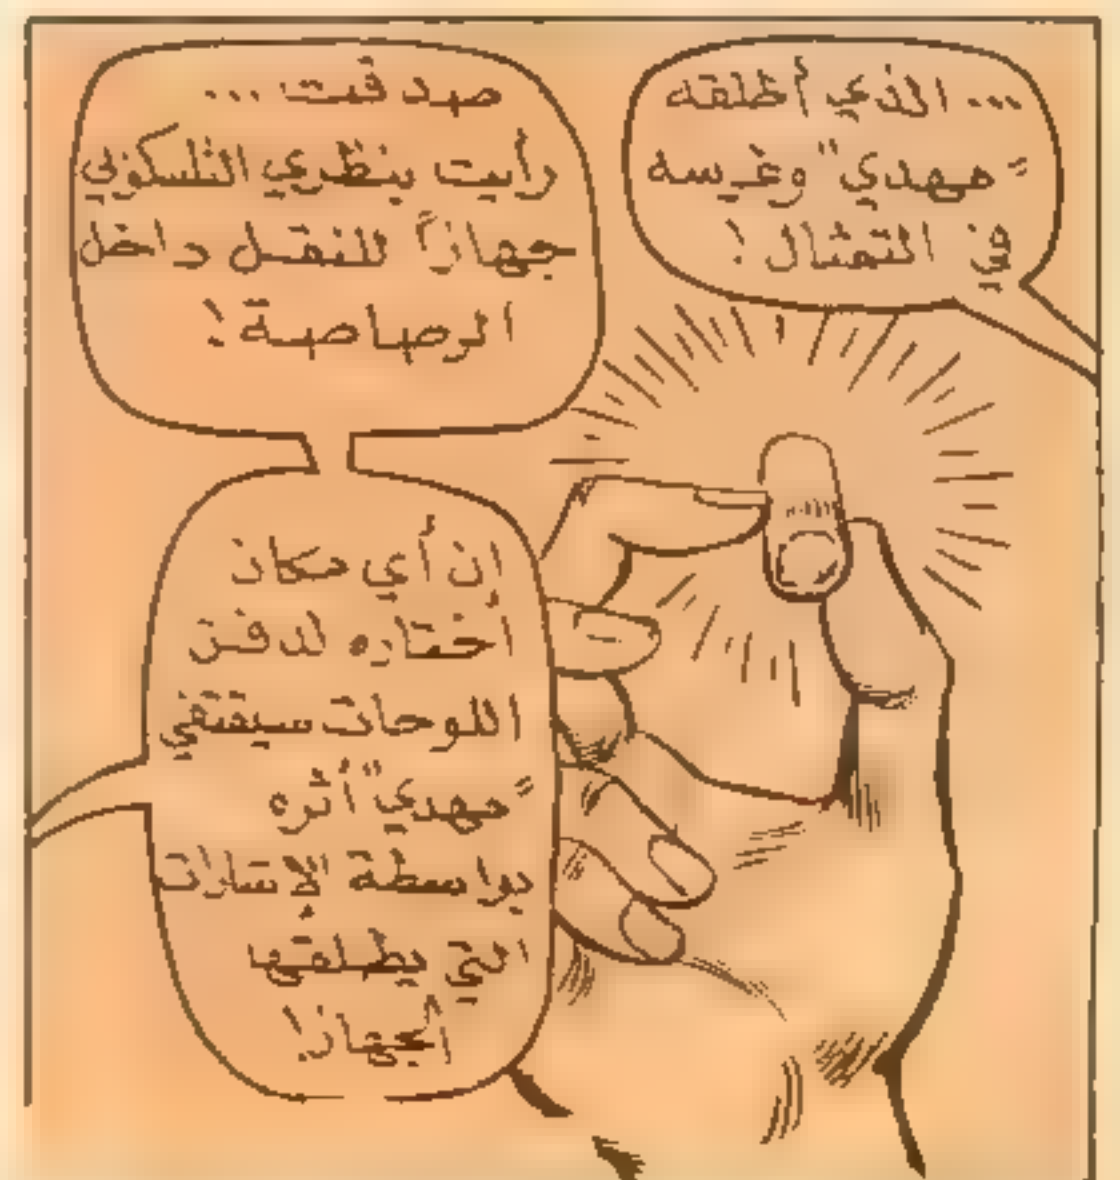 ... الذي أطلقه
"مهدي" وغرسه
في التمثال!
صدقت ...
رأيت بنظري التلسكوبي
جهازاً للنقل داخل
الرصاصة!
ان أي مكان
أختاره لدفن
اللوحات سيقتفي
"مهدي" أثره
بواسطة الإشارات
التي يطلقها
الجهاز!